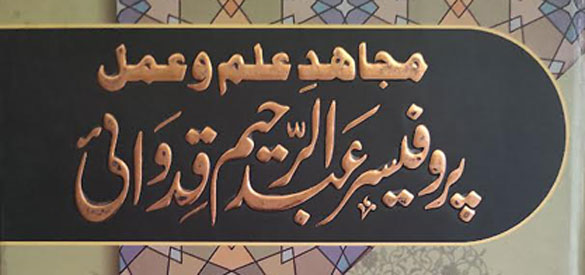 مجاھدِ علم و عمل
پروفیسر عبد الرّحیم قِدوائی